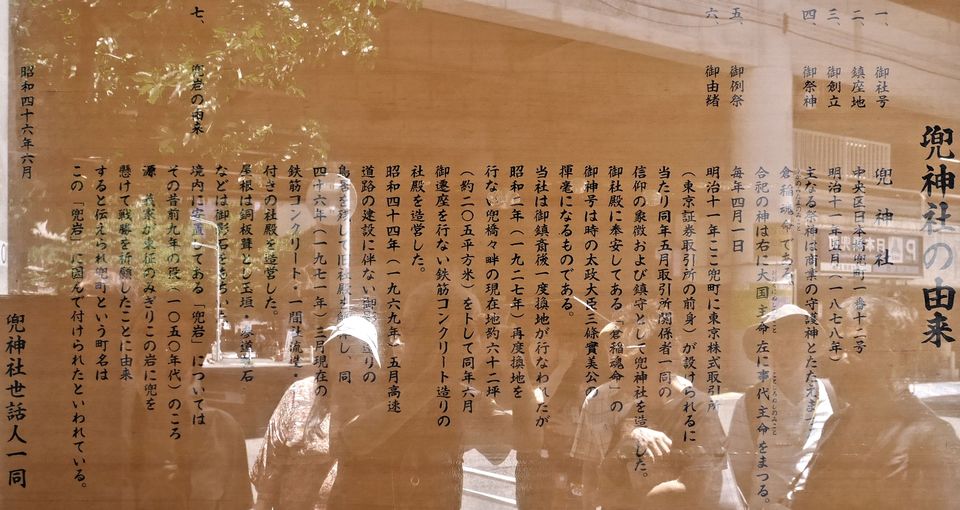 兜神社の由来
一、御社号 兜神社
二、鎮座地 中央区日本橋兜町一番十二号
三、御創立 明治十一年五月(一八七八年)
四、御祭神 主なる祭神は商業の守護神とたたえまつる
倉稲魂命である。
合祀の神は右に大国主命左に事代主命をまつる。
五、御例祭 毎年四月一日
六、御由緒 明治十一年ここ兜町に東京株式取引所
(東京証券取引所の前身)が設けられるに
当たり同年五月取引所関係者一同の
信仰の象徴および鎮守として兜神社を造した。
御社殿に奉安してある「倉稲魂命」の
御神号は時の太政大臣三條實美公の
揮毫になるものである。
当社は御鎮斎後一度換地が行なわれたが
昭和二年(一九二七年)再度換地を
行ない兜橋々畔の現在地約六十二坪
(約二〇五平方米)を卜して同年六月
御遷座を行ない鉄筋コンクリート造りの
社殿を造営した。
昭和四十四年(一九六九年)五月高速
道路の建設に伴ない御造りの
鳥居を残して旧社殿を解体し同
四十六年(一九七一年)三月現在の
鉄筋コンクリート・一間社流造・
付きの社殿を造営した。
屋根は銅板葺とし玉垣・参道敷石
などは御影石をもちい
七、兜岩の由来 境内に安置してある「兜岩」については
その昔前九年の役(一〇五〇年代)のころ
源義家が東征のみぎりこの岩に兜を
懸けて戦勝を祈願したことに由来
すると伝えられ兜町という町名は
この「兜岩」に因んで付けられたといわれている。
昭和四十六年六月
兜神社世話人一同